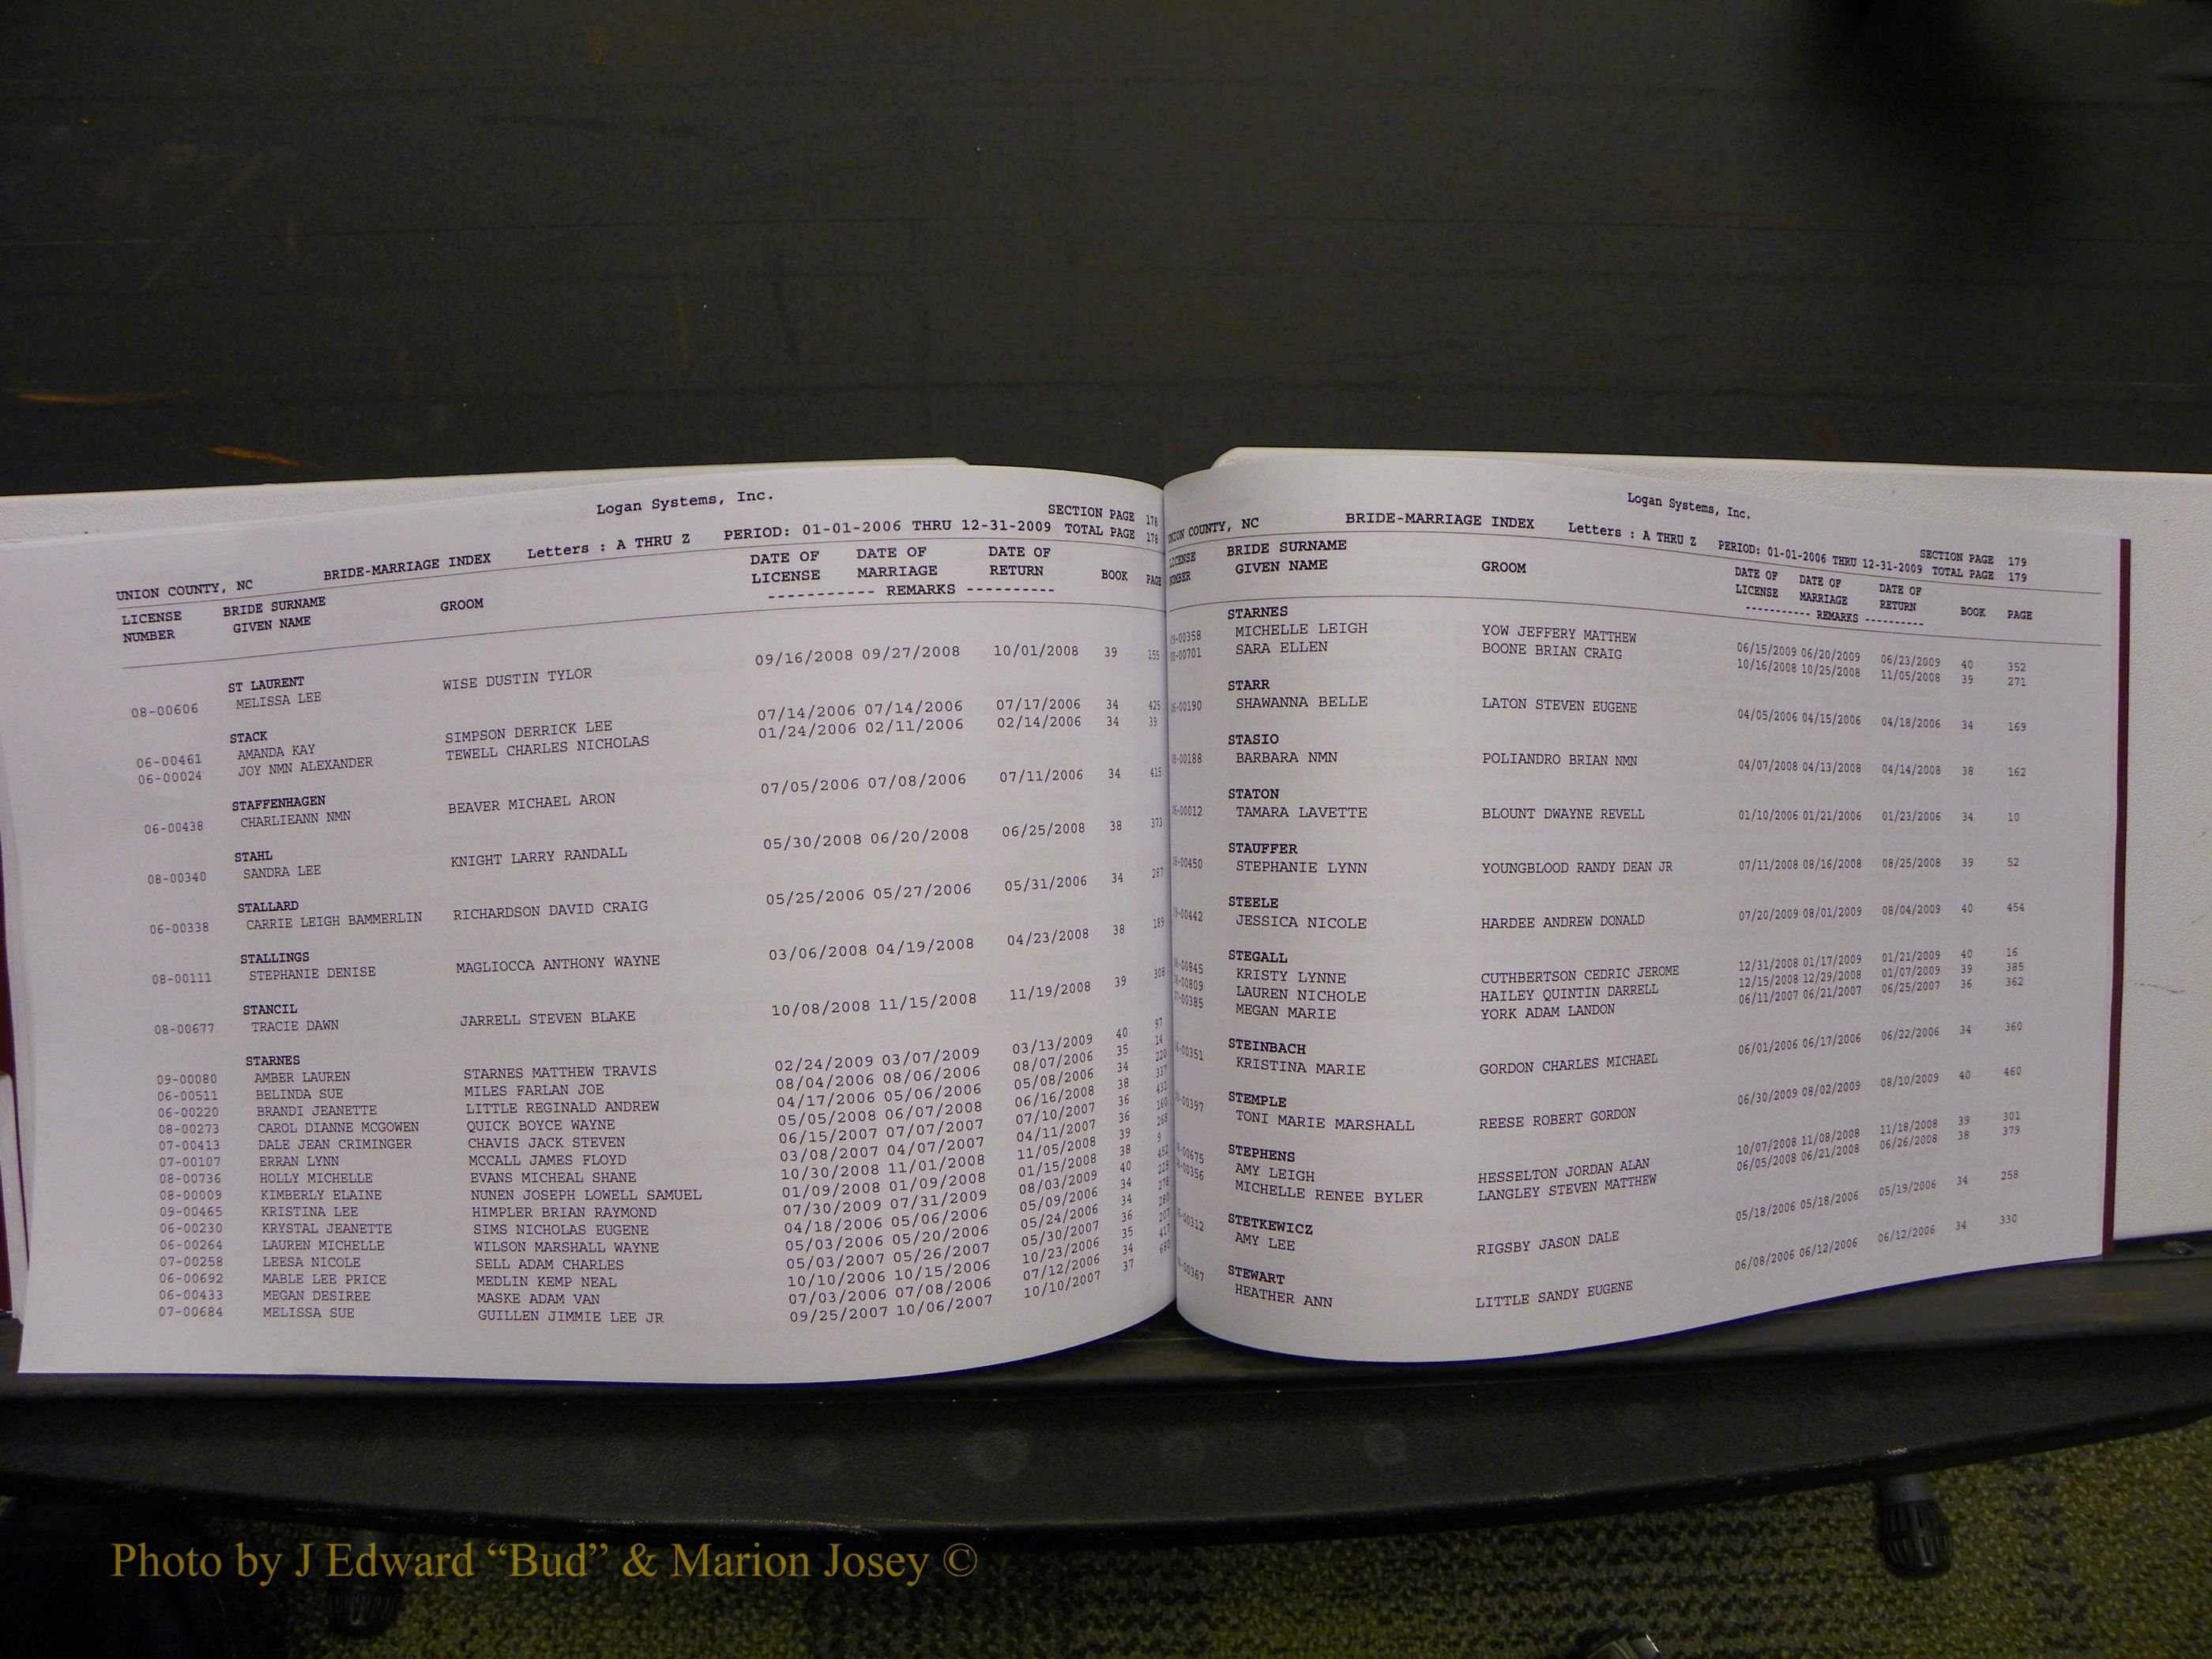 Logan Systems, Inc.
UNION COUNTY, NC BRIDE-MARRIAGE INDEX Letters : A THRU Z PERIOD: 01-01-2006 THRU 12-31-2009 SECTION PAGE 178
TOTAL PAGE 178
LICENSE BRIDE SURNAME GROOM DATE OF DATE OF DATE OF BOOK PAGE
NUMBER GIVEN NAME LICENSE MARRIAGE RETURN
----------- REMARKS ----------
ST LAURENT
08-00606 MELISSA LEE WISE DUSTIN TYLOR 09/16/2008 09/27/2008 10/01/2008 39 155
STACK
06-00461 AMANDA KAY SIMPSON DERRICK LEE 07/14/2006 07/14/2006 07/17/2006 34 425
06-00024 JOY NMN ALEXANDER TEWELL CHARLES NICHOLAS 01/24/2006 02/11/2006 02/14/2006 34 39
STAFFENHAGEN
06-00438 CHARLIEANN NMN BEAVER MICHAEL ARON 07/05/2006 07/08/2006 07/11/2006 34 415
STAHL
08-00340 SANDRA LEE KNIGHT LARRY RANDALL 05/30/2008 06/20/2008 06/25/2008 38 373
STALLARD
06-00338 CARRIE LEIGH BAMMERLIN RICHARDSON DAVID CRAIG 05/25/2006 05/27/2006 05/31/2006 34 287
STALLINGS
08-00111 STEPHANIE DENISE MAGLIOCCA ANTHONY WAYNE 03/06/2008 04/19/2008 04/23/2008 38 189
STANCIL
08-00677 TRACIE DAWN JARRELL STEVEN BLAKE 10/08/2008 11/15/2008 11/19/2008 39 308
STARNES
09-00080 AMBER LAUREN STARNES MATTHEW TRAVIS 02/24/2009 03/07/2009 03/13/2009 40 97
06-00511 BELINDA SUE MILES FARLAN JOE 08/04/2006 08/06/2006 08/07/2006 35 14
06-00220 BRANDI JEANETTE LITTLE REGINALD ANDREW 04/17/2006 05/06/2006 05/08/2006 34 220
08-00273 CAROL DIANNE MCGOWEN QUICK BOYCE WAYNE 05/05/2008 06/07/2008 06/16/2008 38 337
07-00413 DALE JEAN CRIMINGER CHAVIS JACK STEVEN 06/15/2007 07/07/2007 07/10/2007 36 431
07-00107 ERRAN LYNN MCCALL JAMES FLOYD 03/08/2007 04/07/2007 04/11/2007 36 160
08-00736 HOLLY MICHELLE EVANS MICHEAL SHANE 10/30/2008 11/01/2008 11/05/2008 39 268
08-00009 KIMBERLY ELAINE NUNEN JOSEPH LOWELL SAMUEL 01/09/2008 01/09/2008 01/15/2008 38 9
09-00465 KRISTINA LEE HIMPLER BRIAN RAYMOND 07/30/2009 07/31/2009 08/03/2009 40 452
06-00230 KRYSTAL JEANETTE SIMS NICHOLAS EUGENE 04/18/2006 05/06/2006 05/09/2006 34
06-00264 LAUREN MICHELLE WILSON MARSHALL WAYNE 05/03/2006 05/20/2006 05/24/2006 34
07-00258 LEESA NICOLE SELL ADAM CHARLES 05/03/2007 05/26/2007 05/30/2007 36
06-00692 MABLE LEE PRICE MEDLIN KEMP NEAL 10/10/2006 10/15/2006 10/23/2006 35
06-00433 MEGAN DESIREE MASKE ADAM VAN 07/03/2006 07/08/2006 07/12/2006 34
07-00684 MELISSA SUE GUILLEN JIMMIE LEE JR 09/25/2007 10/06/2007 10/10/2007 37
Logan Systems, Inc.
UNION COUNTY, NC BRIDE-MARRIAGE INDEX Letters : A THRU Z PERIOD: 01-01-2006 THRU 12-31-2009 SECTION PAGE 179
TOTAL PAGE 179
LICENSE BRIDE SURNAME GROOM DATE OF DATE OF DATE OF BOOK PAGE
GIVEN NAME LICENSE MARRIAGE RETURN
----------- REMARKS ----------
STARNES
-00358 MICHELLE LEIGH YOW JEFFERY MATTHEW 06/15/2009 06/20/2009 06/23/2009 40 352
-00701 SARA ELLEN BOONE BRIAN CRAIG 10/16/2008 10/25/2008 11/05/2008 39 271
STARR
-00190 SHAWANNA BELLE LATON STEVEN EUGENE 04/05/2006 04/15/2006 04/18/2006 34 169
STASIO
-00188 BARBARA NMN POLIANDRO BRIAN NMN 04/07/2008 04/13/2008 04/14/2008 38 162
STATON
-00012 TAMARA LAVETTE BLOUNT DWAYNE REVELL 01/10/2006 01/21/2006 01/23/2006 34 10
STAUFFER
-00450 STEPHANIE LYNN YOUNGBLOOD RANDY DEAN JR 07/11/2008 08/16/2008 08/25/2008 39 52
STEELE
-00442 JESSICA NICOLE HARDEE ANDREW DONALD 07/20/2009 08/01/2009 08/04/2009 40 454
STEGALL
-00845 KRISTY LYNNE CUTHBERTSON CEDRIC JEROME 12/31/2008 01/17/2009 01/21/2009 40 16
-00809 LAUREN NICHOLE HAILEY QUINTIN DARRELL 12/15/2008 12/29/2008 01/07/2009 39 385
-00385 MEGAN MARIE YORK ADAM LANDON 06/11/2007 06/21/2007 06/25/2007 36 362
STEINBACH
-00351 KRISTINA MARIE GORDON CHARLES MICHAEL 06/01/2006 06/17/2006 06/22/2006 34 360
STEMPLE
-00397 TONI MARIE MARSHALL REESE ROBERT GORDON 06/30/2009 08/02/2009 08/10/2009 40 460
STEPHENS
-00675 AMY LEIGH HESSELTON JORDAN ALAN 10/07/2008 11/08/2008 11/18/2008 39 301
-00356 MICHELLE RENEE BYLER LANGLEY STEVEN MATTHEW 06/05/2008 06/21/2008 06/26/2008 38 379
STETKEWICZ
-00312 AMY LEE RIGSBY JASON DALE 05/18/2006 05/18/2006 05/19/2006 34 258
STEWART
-00367 HEATHER ANN LITTLE SANDY EUGENE 06/08/2006 06/12/2006 06/12/2006 34 330
Photo by J Edward “Bud” & Marion Josey ©